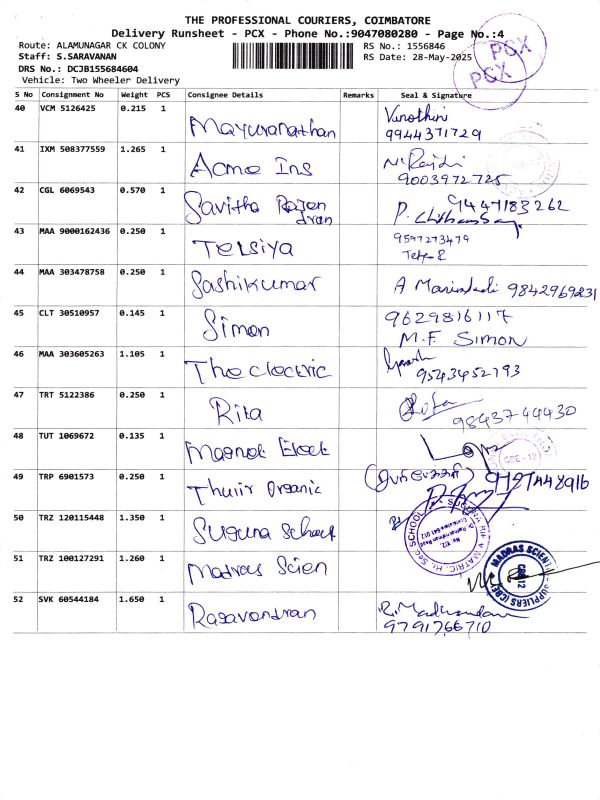 THE PROFESSIONAL COURIERS, COIMBATORE
Delivery Runsheet - PCX - Phone No.:9047080280 - Page No.:4
Route: ALAMUNAGAR CK COLONY
RS No.: 1556846
Staff: S.SARAVANAN
RS Date: 28-May-2025
DRS No.: DCJB155684604
Vehicle: Two Wheeler Delivery
PCX
PCX
S No Consignment No Weight PCS Consignee Details Remarks Seal & Signature
40 VCM 5126425 0.215 1 Mayuranathan Vinothini
9944371729
41 IXM 508377559 1.265 1 Acme Ins
9003972725
42 CGL 6069543 0.570 1 Savitha Rajen
dran
9447183262
43 MAA 9000162436 0.250 1 Telsiya
9597273479
44 MAA 303478758 0.250 1 Sashikumar A 9842969231
45 CLT 30510957 0.145 1 Simon 9629816117
M.F. SIMON
46 MAA 303605263 1.105 1 The electric
9543452793
47 TRT 5122386 0.250 1 Rita
9843744430
48 TUT 1069672 0.135 1
49 TRP 6901573 0.250 1 Organic
50 TRZ 120115448 1.350 1 Suguna School
51 TRZ 100127291 1.260 1 Madras Scien
MADRAS SCIENTIFIC SUPPLIERS
52 SVK 60544184 1.650 1 Ragavendran R. Madhavan
9791766710